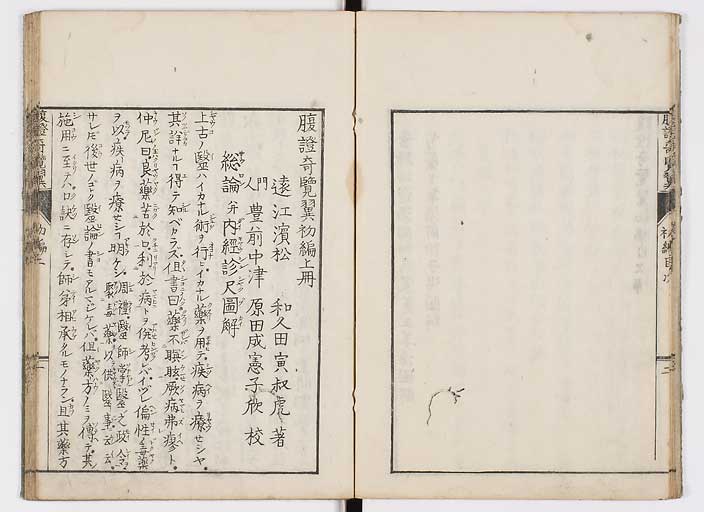 腹證奇覽翼初編上冊
遠江濱松 和久田寅叔虎 著
門人 豊前中津 原田成憲子欣 校
総論 并内經診尺圖解
上古ノ毉ハイカナル術ヲ行ヒイカナル藥ヲ用テ疾病ヲ療セシヤ
其詳ナルヿ得テ知ベカラズ但書曰藥不瞑眩厥病弗瘳ト
仲尼曰良藥苦於口利於病トヲ併考レバイヅレ偏性ノ毒藥
ヲ以テ疾病ヲ療セシヿ明ケシ 周禮毉師掌毉之政令聚毒藥以供毉事云云
サレドモ後世ノゴトク毉論ノ書モアルマジケレバ但藥方ノミヲ傳テ其
施用ニ至テハ口訣ニ存シテ師弟相承クルモノナラン且其藥方
腹證奇覽翼 初編上
腹證奇覽翼 初編目次 二